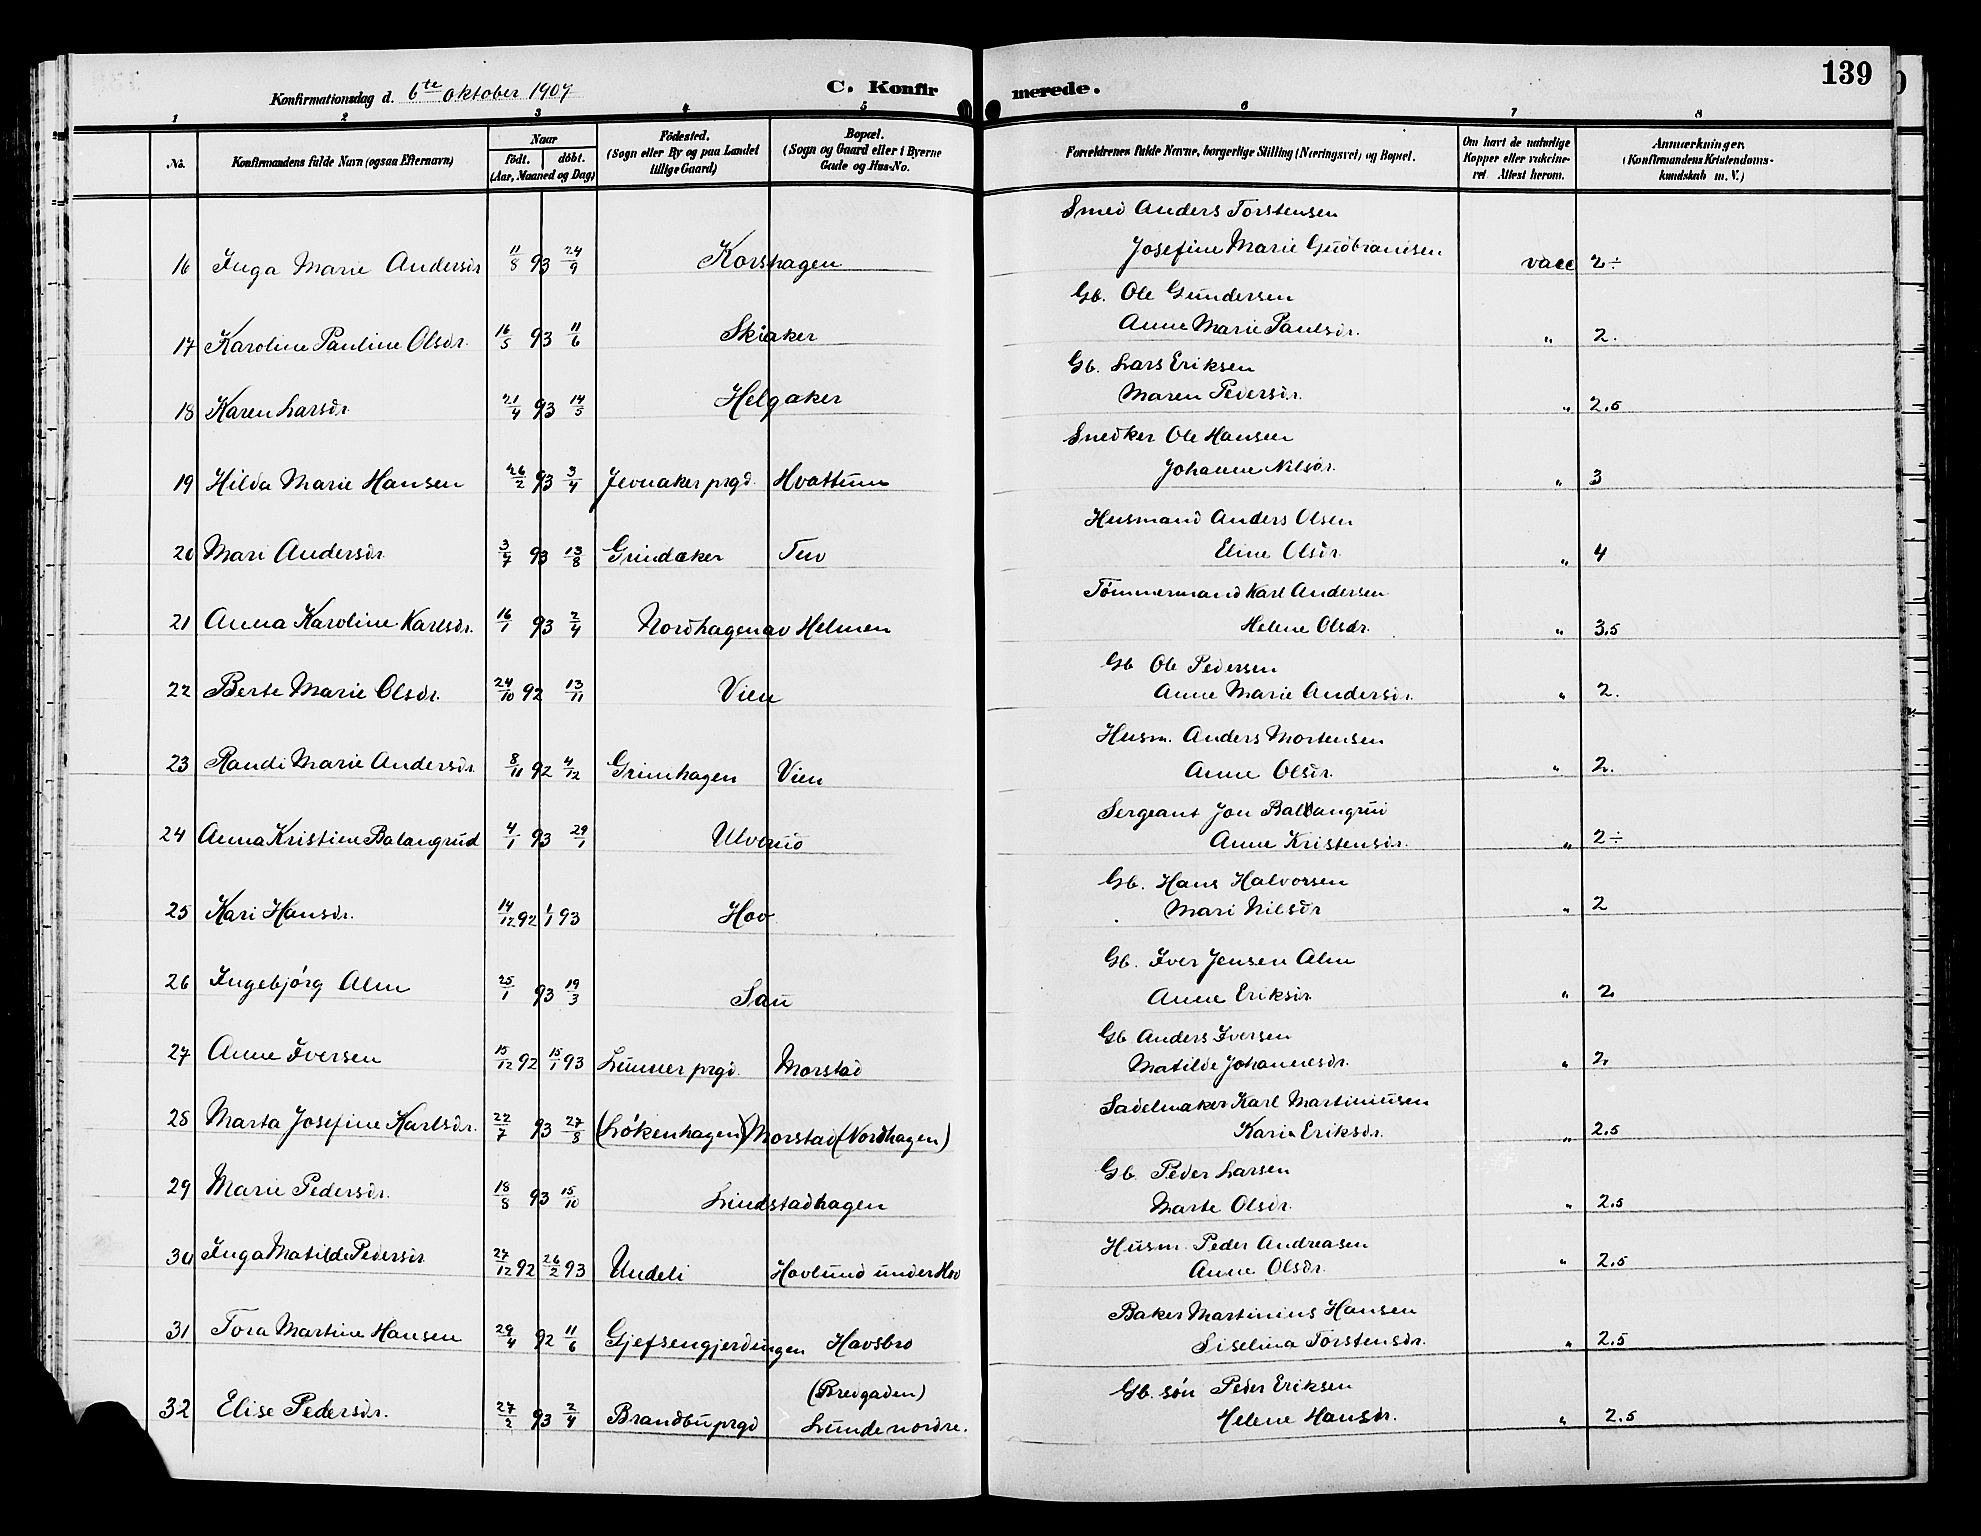 139
Konfirmationsdag d. 6te oktober 1907
C. Konfirmerede.
1 2 3 4 5 6 7 8
No.
Konfirmandens fulde Navn (ogsaa Efternavn)
Naar
födt. döbt.
(Aar, Maaned og Dag)
Födested.
(Sogn eller By og paa Landet
tillige Gaard)
Bopæl.
(Sogn og Gaard eller i Byerne
Gade og Hus-No.
Forældrenes fulde Navne, borgerlige Stilling (Næringsvei) og Bopæl.
Om havt de naturlige
Kopper eller vakcine-
ret. Attest herom.
Anmærkninger.
(Konfirmandens Kristendoms-
kundskab m. V.)
Smed Anders Torstensen
16 Inga Marie Andersdr 11/8 93 24/9 Korshagen Josefine Marie Gudbrandsen vacc 2÷
Gb. Ole Gundersen
17 Karoline Pauline Olsdr. 16/5 93 11/6 Skiaker Anne Marie Paulsdr. " 2.
Gb. Lars Eriksen
18 Karen Larsdr 21/4 93 14/5 Helgaker Maren Pedersdr. " 2.5
Snedker Ole Hansen
19 Hilda Marie Hansen 26/2 93 3/4 Jevnaker prgd. Hvattum Johanne Nilsdr. " 3
Husmand Anders Olsen
20 Mari Andersdr 3/7 93 13/8 Grindaker Tuv Eline Olsdr. " 4
Tømmermand Karl Andersen
21 Anna Karoline Karlsdr. 16/1 93 2/4 Nordhagen av Helmen Helene Olsdr. " 3.5
Gb Ole Pedersen
22 Berte Marie Olsdr. 24/10 92 13/11 Vien Anne Marie Andersdr. " 2.
Husm. Anders Mortensen
23 Randi Marie Andersdr. 8/11 92 4/12 Grimhagen Vien Anne Olsdr. " 2.
Sergeant Jon Ballangrud
24 Anna Kristine Balangrud 4/1 93 29/1 Ulverud Anne Kristensdr. " 2÷
Gb. Hans Halvorsen
25 Kari Hansdr. 14/12 92 1/1 93 Hov Mari Nilsdr " 2
Gb. Iver Jensen Alm
26 Ingebjørg Alm 25/1 93 19/3 Sau Anne Eriksdr. " 2
Gb Anders Iversen
27 Anne Iversen 15/12 92 15/1 93 Lunner prgd. Morstad Matilde Johannesdr. " 2.
Sadelmaker Karl Martiniusen
28 Marta Josefine Karlsdr. 22/7 93 27/8 (Løkenhagen) Morstad (Nordhagen) Karia Eriksdr. " 2.5
Gb. Peder Larsen
29 Marie Pedersdr. 18/8 93 15/10 Lindstadhagen Marte Olsdr. " 2.5
Husm. Peder Andreasen
30 Inga Matilde Pedersdr 27/12 92 26/2 93 Undeli Hovlund under Hov Anne Olsdr. " 2.5
Baker Martinius Hansen
31 Tora Martine Hansen 29/4 92 11/6 Gjefsengjerdingen Havsbro Siselina Torstensdr. " 2.5
(Bredgaden) Gb. søn Peder Eriksen
32 Elise Pedersdr. 27/2 93 2/4 Brandbu prgd Lunde nordre. Helene Hansdr. " 2.5